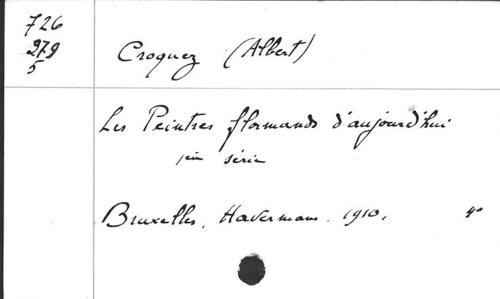 726
279
5
Croquez (Albert)
Les Peintres flamands d'aujourd'hui
1ère série
Bruxelles, Havermans. 1910. 4°